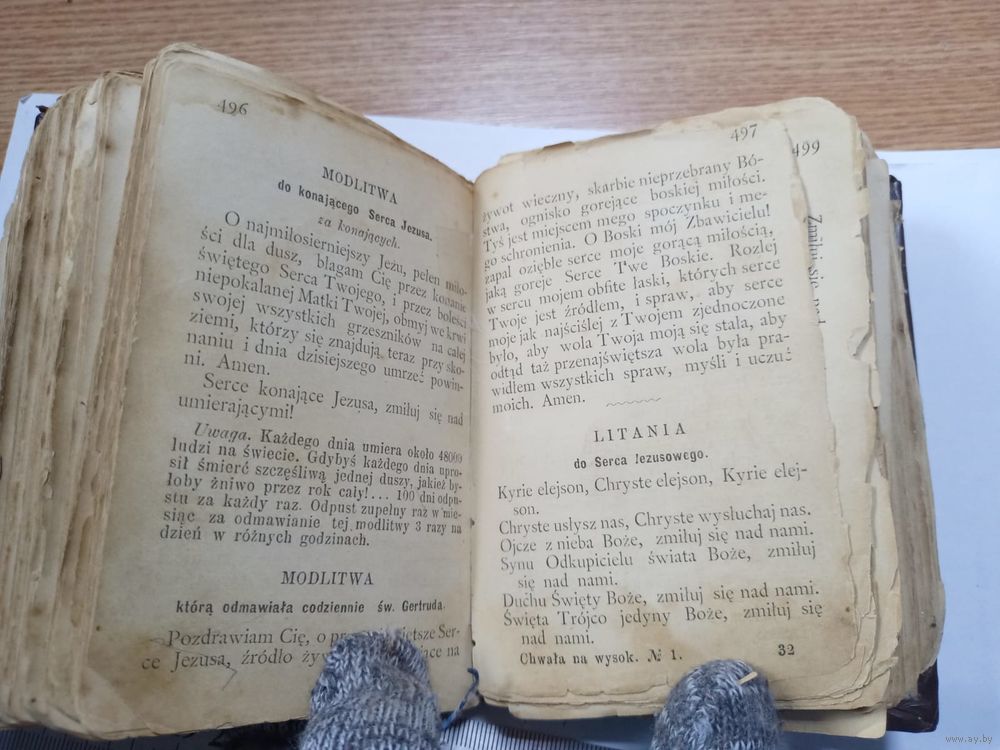 496
MODLITWA
do konającego Serca Jezusa.
za konających.
O najmiłosierniejszy Jezu, pełen miło-
ści dla dusz, błagam Cię przez konanie
świętego Serca Twojego, i przez boleści
niepokalanej Matki Twojej, obmyj we krwi
swojej wszystkich grzeszników na całej
ziemi, którzy się znajdują teraz przy sko-
naniu i dnia dzisiejszego umrzeć powin-
ni. Amen.
Serce konające Jezusa, zmiłuj się nad
umierającymi!
Uwaga. Każdego dnia umiera około 48000
ludzi na świecie. Gdybyś każdego dnia upro-
sił śmierć szczęśliwą jednej duszy, jakież by-
łoby żniwo przez rok cały!... 100 dni odpu-
stu za każdy raz. Odpust zupełny raz w mie-
siąc za odmawianie tej modlitwy 3 razy na
dzień w różnych godzinach.
MODLITWA
którą odmawiała codziennie św. Gertruda.
Pozdrawiam Cię, o Ser-
ce Jezusa, źródło na
497
żywot wieczny, skarbie nieprzebrany Bó-
stwa, ognisko gorejące boskiej miłości.
Tyś jest miejscem mego spoczynku i me-
go schronienia. O Boski mój Zbawicielu!
zapal oziębłe serce moje gorącą miłością,
jaką goreje Serce Twe Boskie. Rozlej
w sercu mojem obfite łaski, których serce
Twoje jest źródłem, i spraw, aby serce
moje jak najściślej z Twojem zjednoczone
było, aby wola Twoja moją się stała, aby
odtąd taż przenajświętsza wola była pra-
widłem wszystkich spraw, myśli i uczuć
moich. Amen.
LITANIA
do Serca Jezusowego.
Kyrie elejson, Chryste elejson, Kyrie elej-
son.
Chryste usłysz nas, Chryste wysłuchaj nas.
Ojcze z nieba Boże, zmiłuj się nad nami.
Synu Odkupicielu świata Boże, zmiłuj
się nad nami.
Duchu Święty Boże, zmiłuj się nad nami.
Święta Trójco jedyny Boże, zmiłuj się
nad nami.
Chwała na wysok. № 1. 32
499
Zmiłuj się nad
www.ay.by